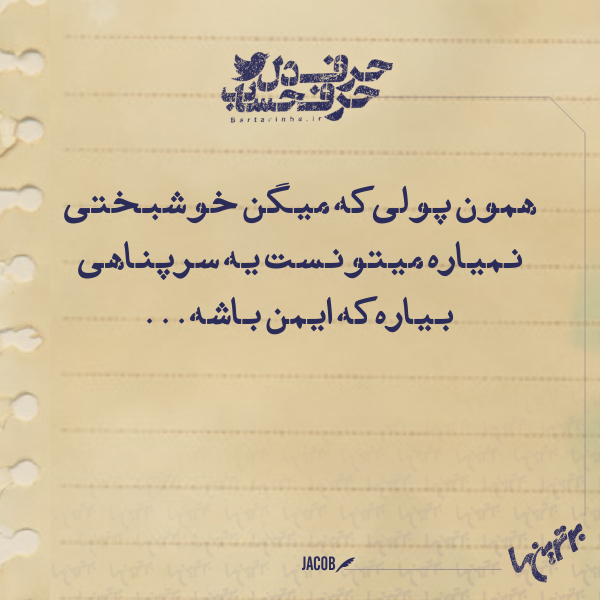 حرف دل
حرف حساب
Bartarinha.ir
همون پولی که میگن خوشبختی
نمیاره میتونست یه سرپناهی
بیاره که ایمن باشه...
JACOB
برترین‌ها